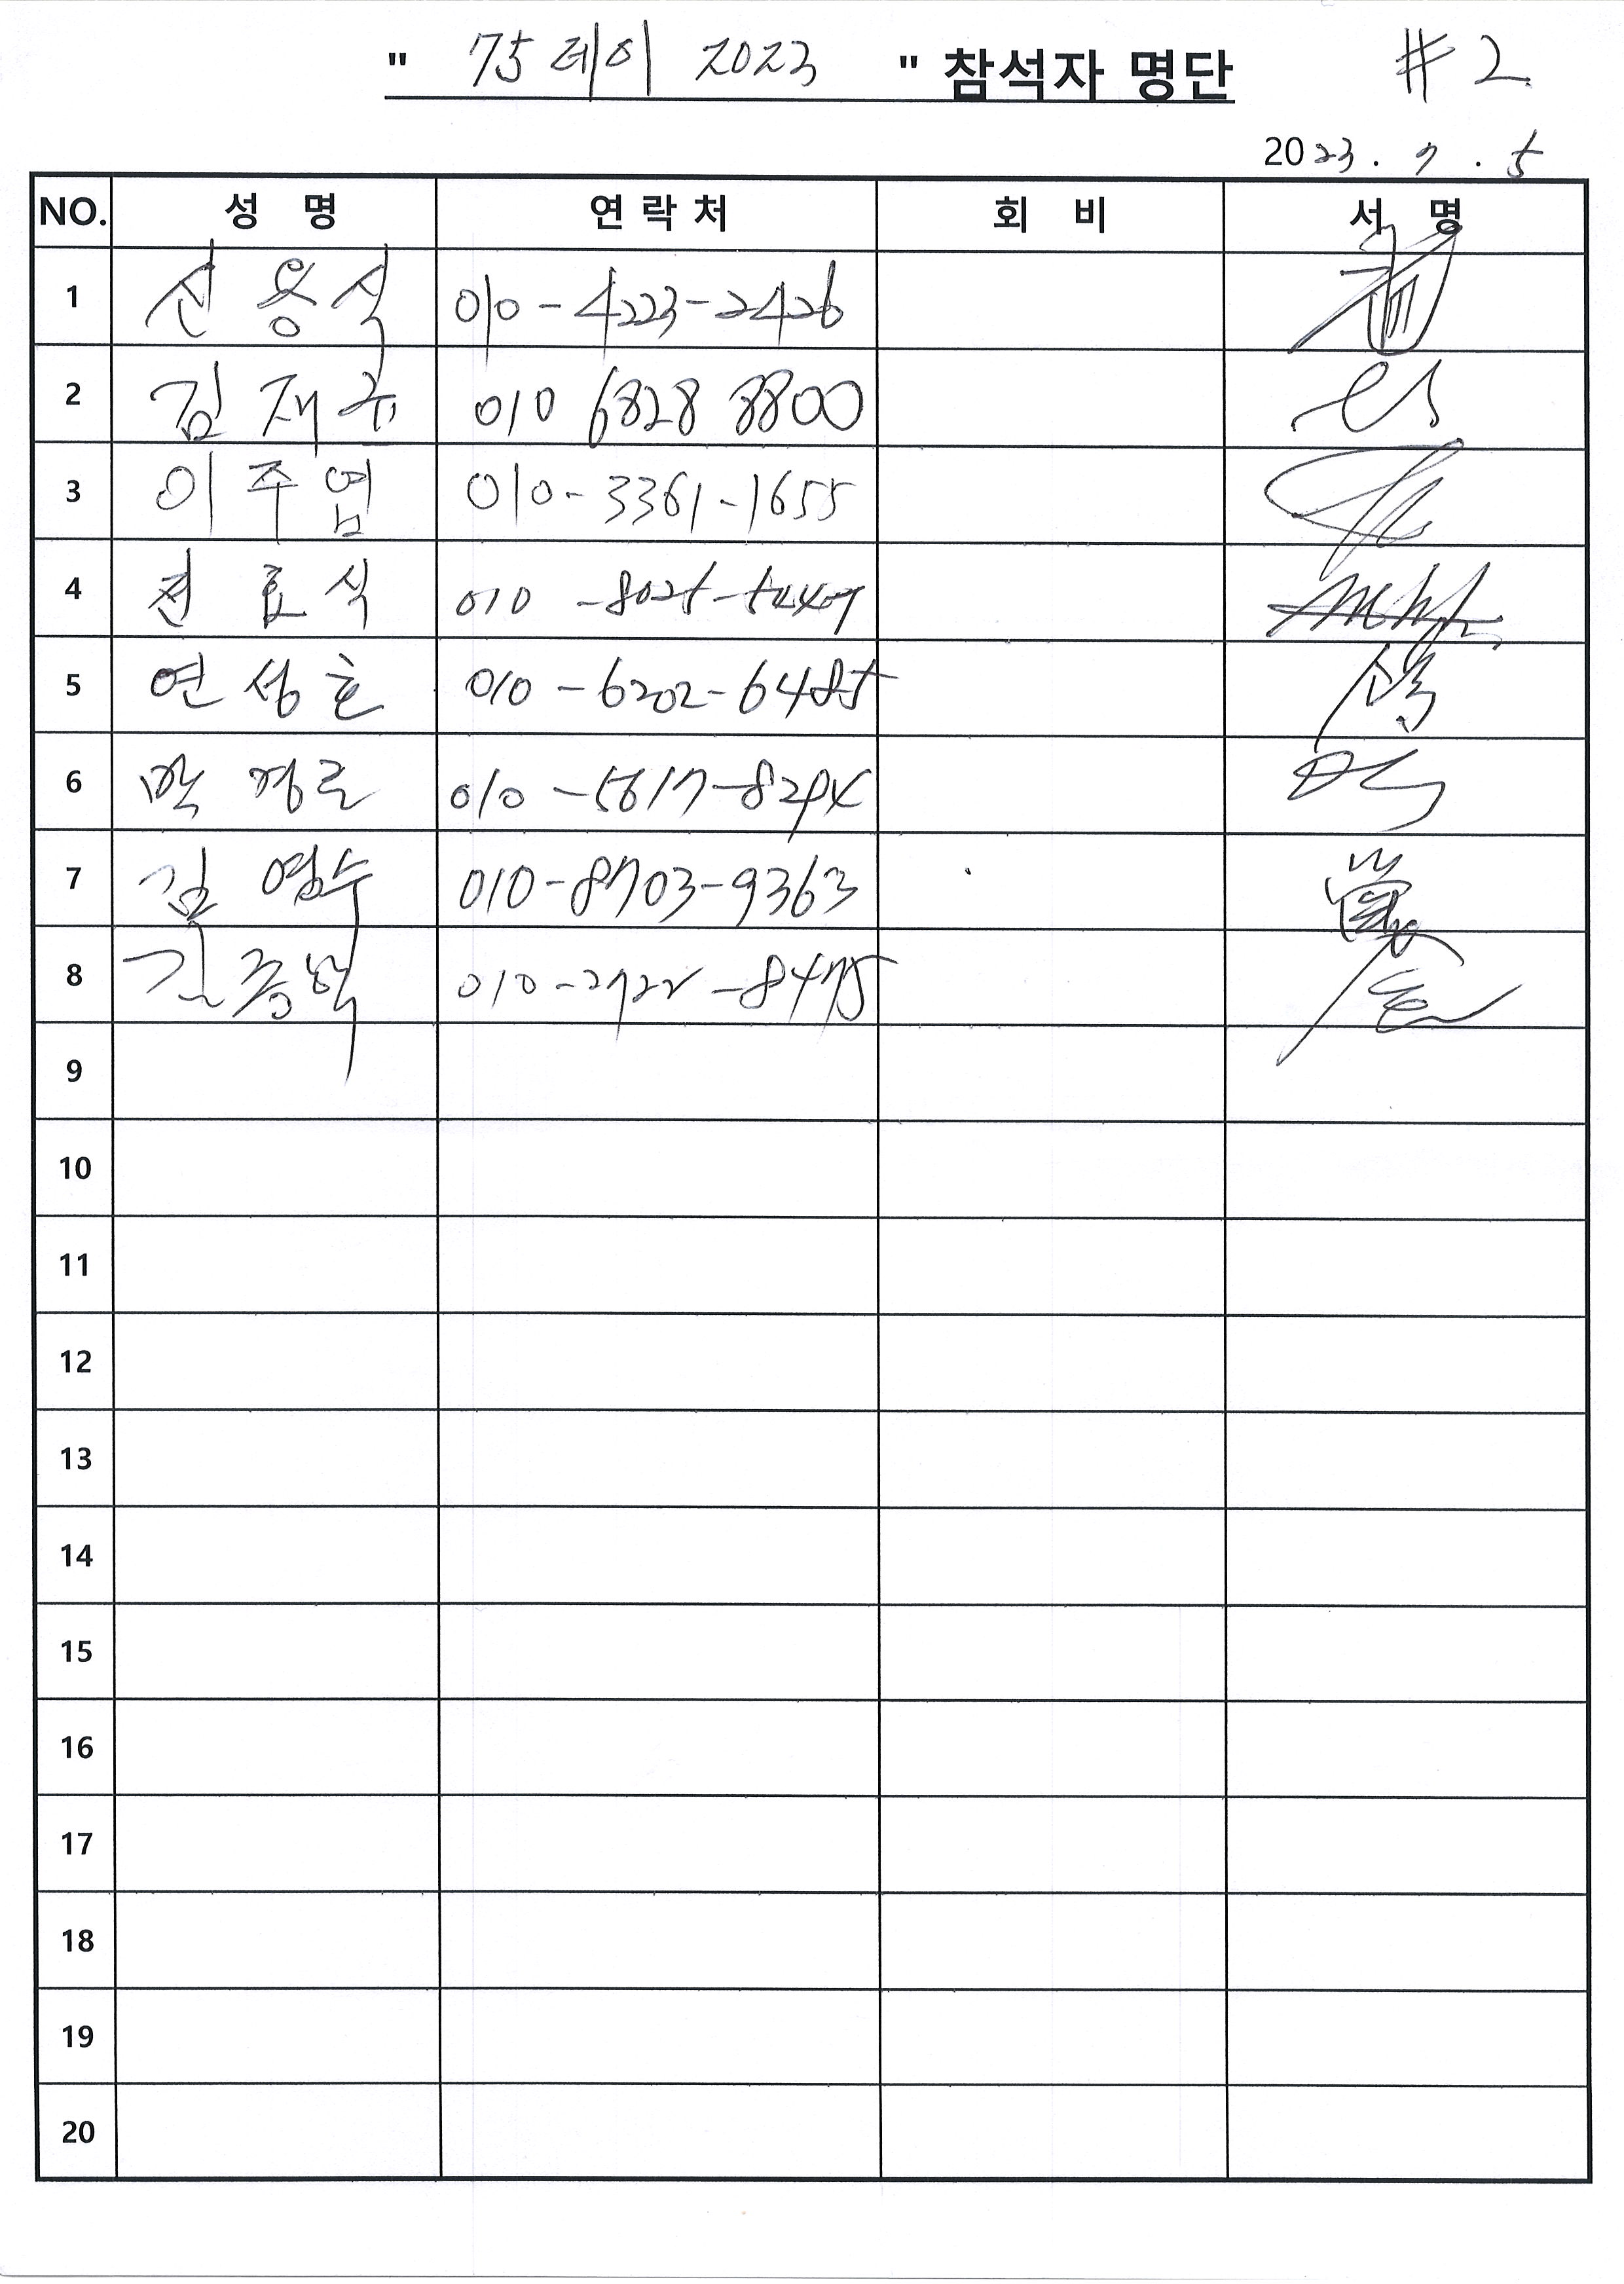 " 75 데이 2023 " 참석자 명단 #2
2023. 7. 5
NO. 성 명 연 락 처 회 비 서 명
1 신용식 010-4223-2426
2 김재규 010 6828 8800
3 이주엽 010-3361-1655
4 전효식 010
5 연성호 010-6202-6485
6 010-5617-8294
7 김영수 010-8703-9363
8 010-2722-8475
9
10
11
12
13
14
15
16
17
18
19
20